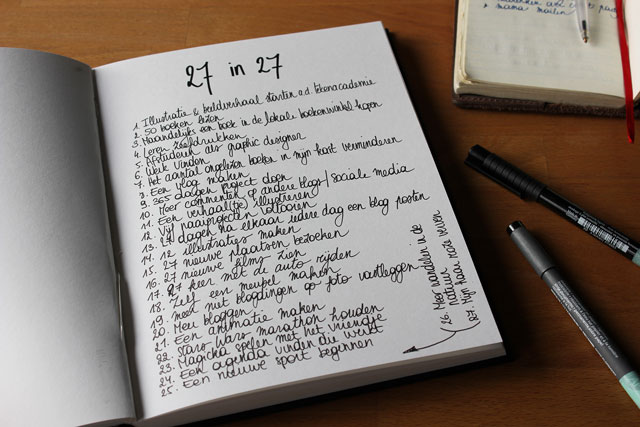 27 in 27
1. Illustratie & beeldverhaal starten a.d. tekenacademie
2. 50 boeken lezen
3. Maandelijks een boek in de lokale boekenwinkel kopen
4. Leren zeefdrukken
5. Afstuderen als graphic designer
6. Werk vinden
7. Het aantal ongelezen boeken in mijn kast verminderen
8. Een vlog maken
9. 365 dagen project doen
10. Meer commenten op andere blogs/sociale media
11. Een verhaal(tje) illustreren
12. Vijf naaiprojecten voltooien
13. 27 dagen na elkaar iedere dag een blog posten
14. 12 illustraties maken
15. 27 nieuwe plaatsen bezoeken
16. 27 nieuwe films zien
17. 27 keer met de auto rijden
18. Zelf een meubel maken
19. meer niet blogdingen op foto vastleggen
20. Meer bloggen
21. Een animatie maken
22. Star Wars marathon houden
23. Magicka spelen met het vriendje
24. Een agenda vinden die werkt
25. Een nieuwe sport beginnen
26. Meer wandelen in de
natuur
27. Mijn haar roze verven
mama mailen